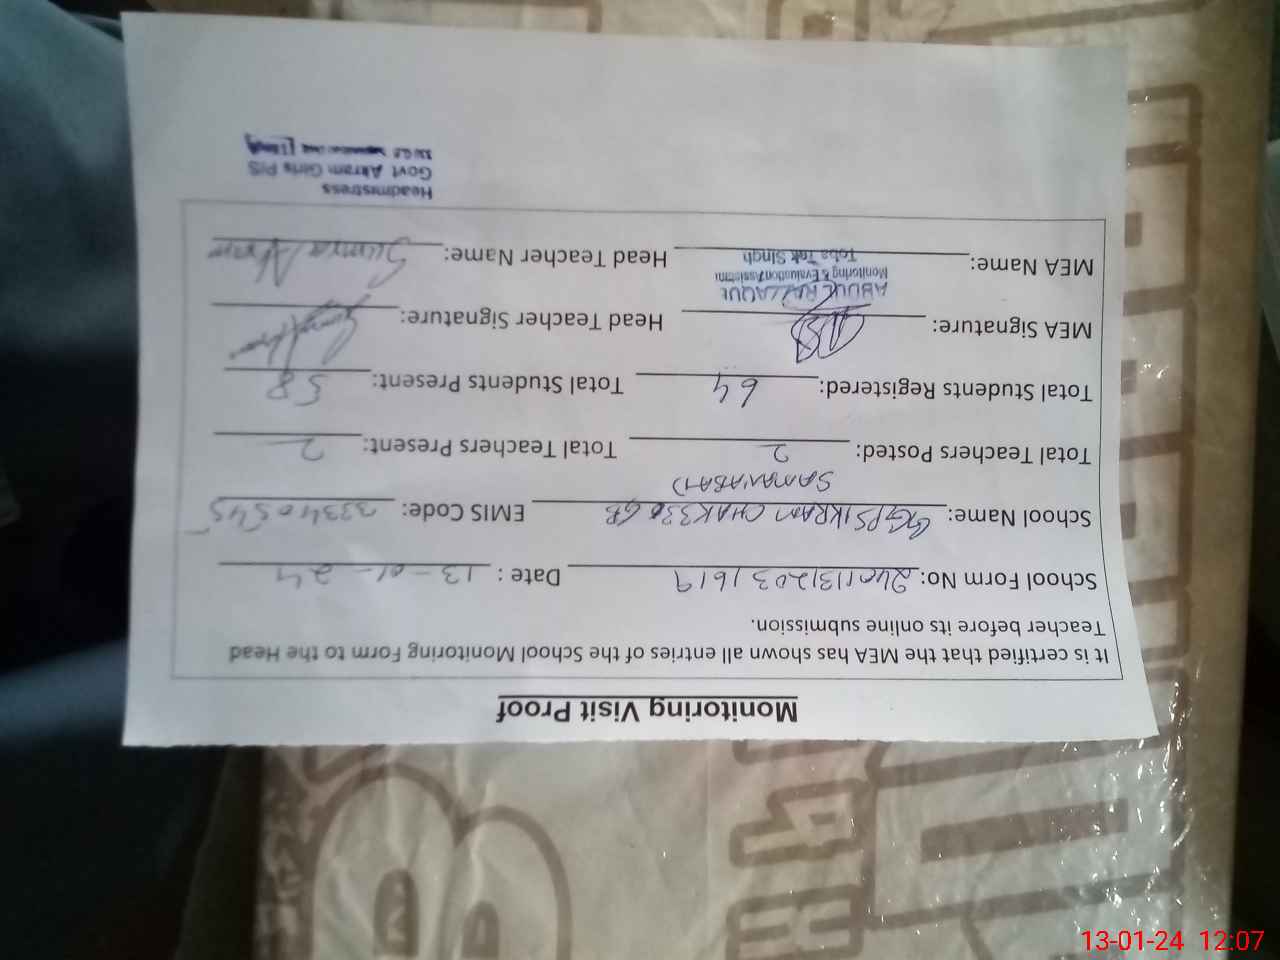 Monitoring Visit Proof
It is certified that the MEA has shown all entries of the School Monitoring Form to the Head
Teacher before its online submission.
School Form No: 24011312031619 Date: 13-01-24
School Name: GGPS IKRAM CHAK 330 GB EMIS Code: 33340545
SAMANABAD
Total Teachers Posted: 2 Total Teachers Present: 2
Total Students Registered: 64 Total Students Present: 58
MEA Signature: Head Teacher Signature:
ABDUL RAZZAQUE
Monitoring & Evaluation Assistant
Toba Tek Singh
MEA Name: Head Teacher Name: Sumra Akram
Headmistress
Govt Akram Girls P/S
13-01-24 12:07